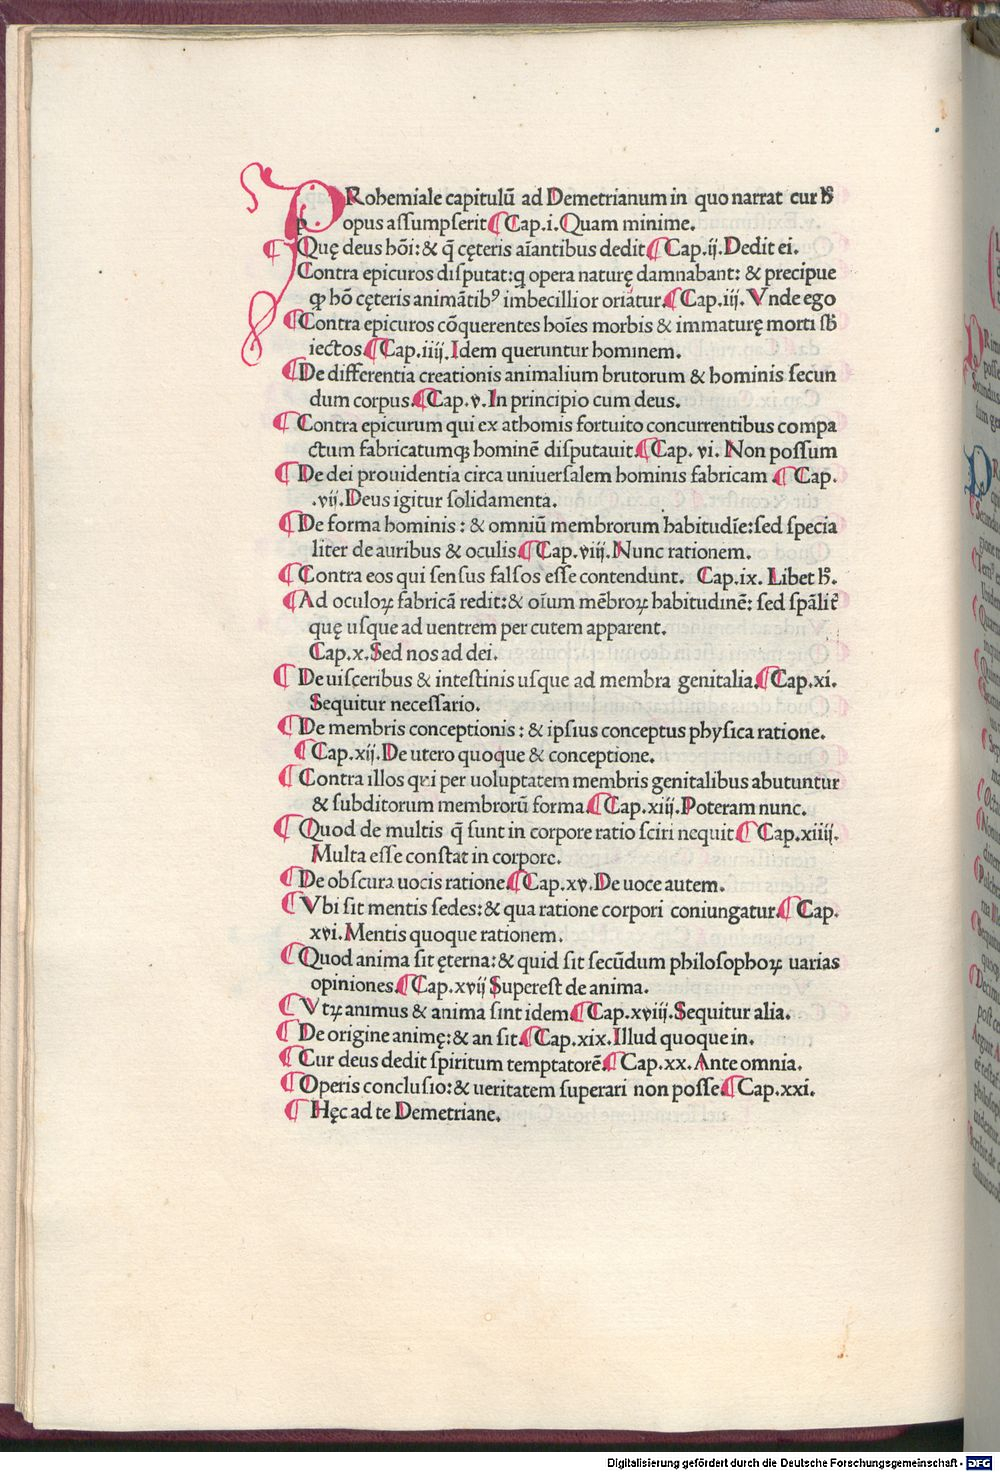 PRohemiale capitulū ad Demetrianum in quo narrat cur h̄
opus assumpserit ¶ Cap.i. Quam minime.
¶ Quę deus hōi: & q̄ cęteris aīantibus dedit ¶ Cap.ij. Dedit ei.
Contra epicuros disputat: q opera naturę damnabant: & precipue
ꝙ hō cęteris animātibꝰ imbecillior oriatur. ¶ Cap.iij. Vnde ego
¶ Contra epicuros cōquerentes hoīes morbis & immaturę morti sb̄
iectos. ¶ Cap.iiij. Idem queruntur hominem.
¶ De differentia creationis animalium brutorum & hominis secun
dum corpus. ¶ Cap.v. In principio cum deus.
¶ Contra epicurum qui ex athomis fortuito concurrentibus compa
ctum fabricatumqȝ hominē disputauit. ¶ Cap. vi. Non possum
¶ De dei prouidentia circa uniuersalem hominis fabricam. ¶ Cap.
.vij. Deus igitur solidamenta.
¶ De forma hominis: & omniū membrorum habitudīe: sed specia
liter de auribus & oculis. ¶ Cap.viij. Nunc rationem.
¶ Contra eos qui sensus falsos esse contendunt. Cap.ix. Libet h̄.
¶ Ad oculoꝝ fabricā redit: & oīum mēbroꝝ habitudinē: sed spāliť
quę usque ad uentrem per cutem apparent.
Cap.x. Sed nos ad dei.
¶ De uisceribus & intestinis usque ad membra genitalia. ¶ Cap.xi.
Sequitur necessario.
¶ De membris conceptionis: & ipsius conceptus physica ratione.
¶ Cap.xij. De utero quoque & conceptione.
¶ Contra illos qui per uoluptatem membris genitalibus abutuntur
& subditorum membrorū forma. ¶ Cap.xiij. Poteram nunc.
¶ Quod de multis q̄ sunt in corpore ratio sciri nequit. ¶ Cap.xiiij.
Multa esse constat in corpore.
¶ De obscura uocis ratione. ¶ Cap.xv. De uoce autem.
¶ Vbi sit mentis sedes: & qua ratione corpori coniungatur. ¶ Cap.
xvi. Mentis quoque rationem.
¶ Quod anima sit ęterna: & quid sit secūdum philosophoꝝ uarias
opiniones. ¶ Cap.xvij Superest de anima.
¶ Vtꝝ animus & anima sint idem. ¶ Cap.xviij. Sequitur alia.
¶ De origine animę: & an sit. ¶ Cap.xix. Illud quoque in.
¶ Cur deus dedit spiritum temptatorē. ¶ Cap.xx. Ante omnia.
¶ Operis conclusio: & ueritatem superari non posse. ¶ Cap.xxi.
¶ Hęc ad te Demetriane.
Digitalisierung gefördert durch die Deutsche Forschungsgemeinschaft - DFG